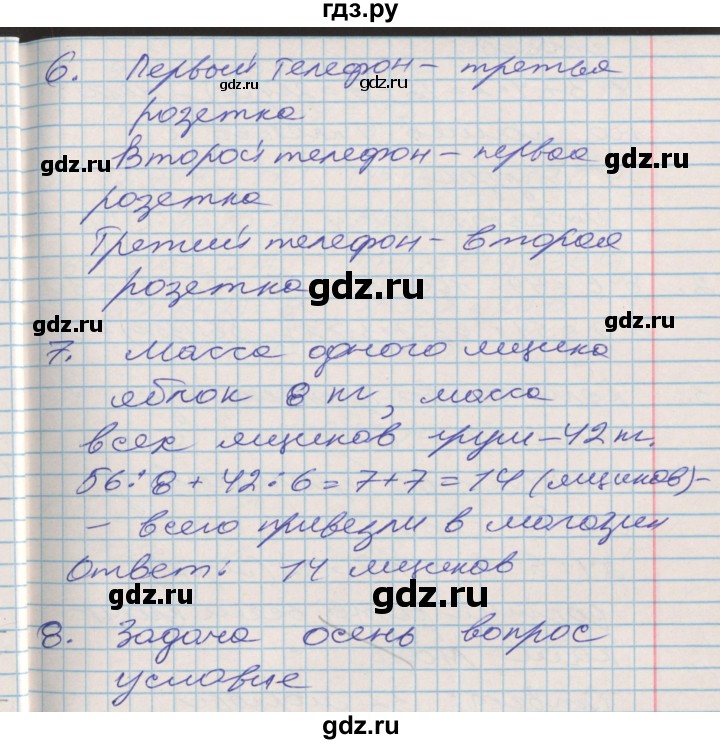 гдз.ру
6. Первый телефон – третья
gdz.ru gdz.ru
розетка
Второй телефон – первая
gdz.ru gdz.ru
розетка
Третий телефон – вторая
розетка
gdz.ru
gdz.ru gdz.ru
7. Масса одного ящика
яблок 8 кг, масса
всех ящиков груш – 42 кг.
56:8 + 42:6 = 7+7 = 14 (ящиков) –
– всего привезли в магазин
Ответ: 14 ящиков
gdz.ru gdz.ru
8. Задача осень вопрос
условие
gdz.ru